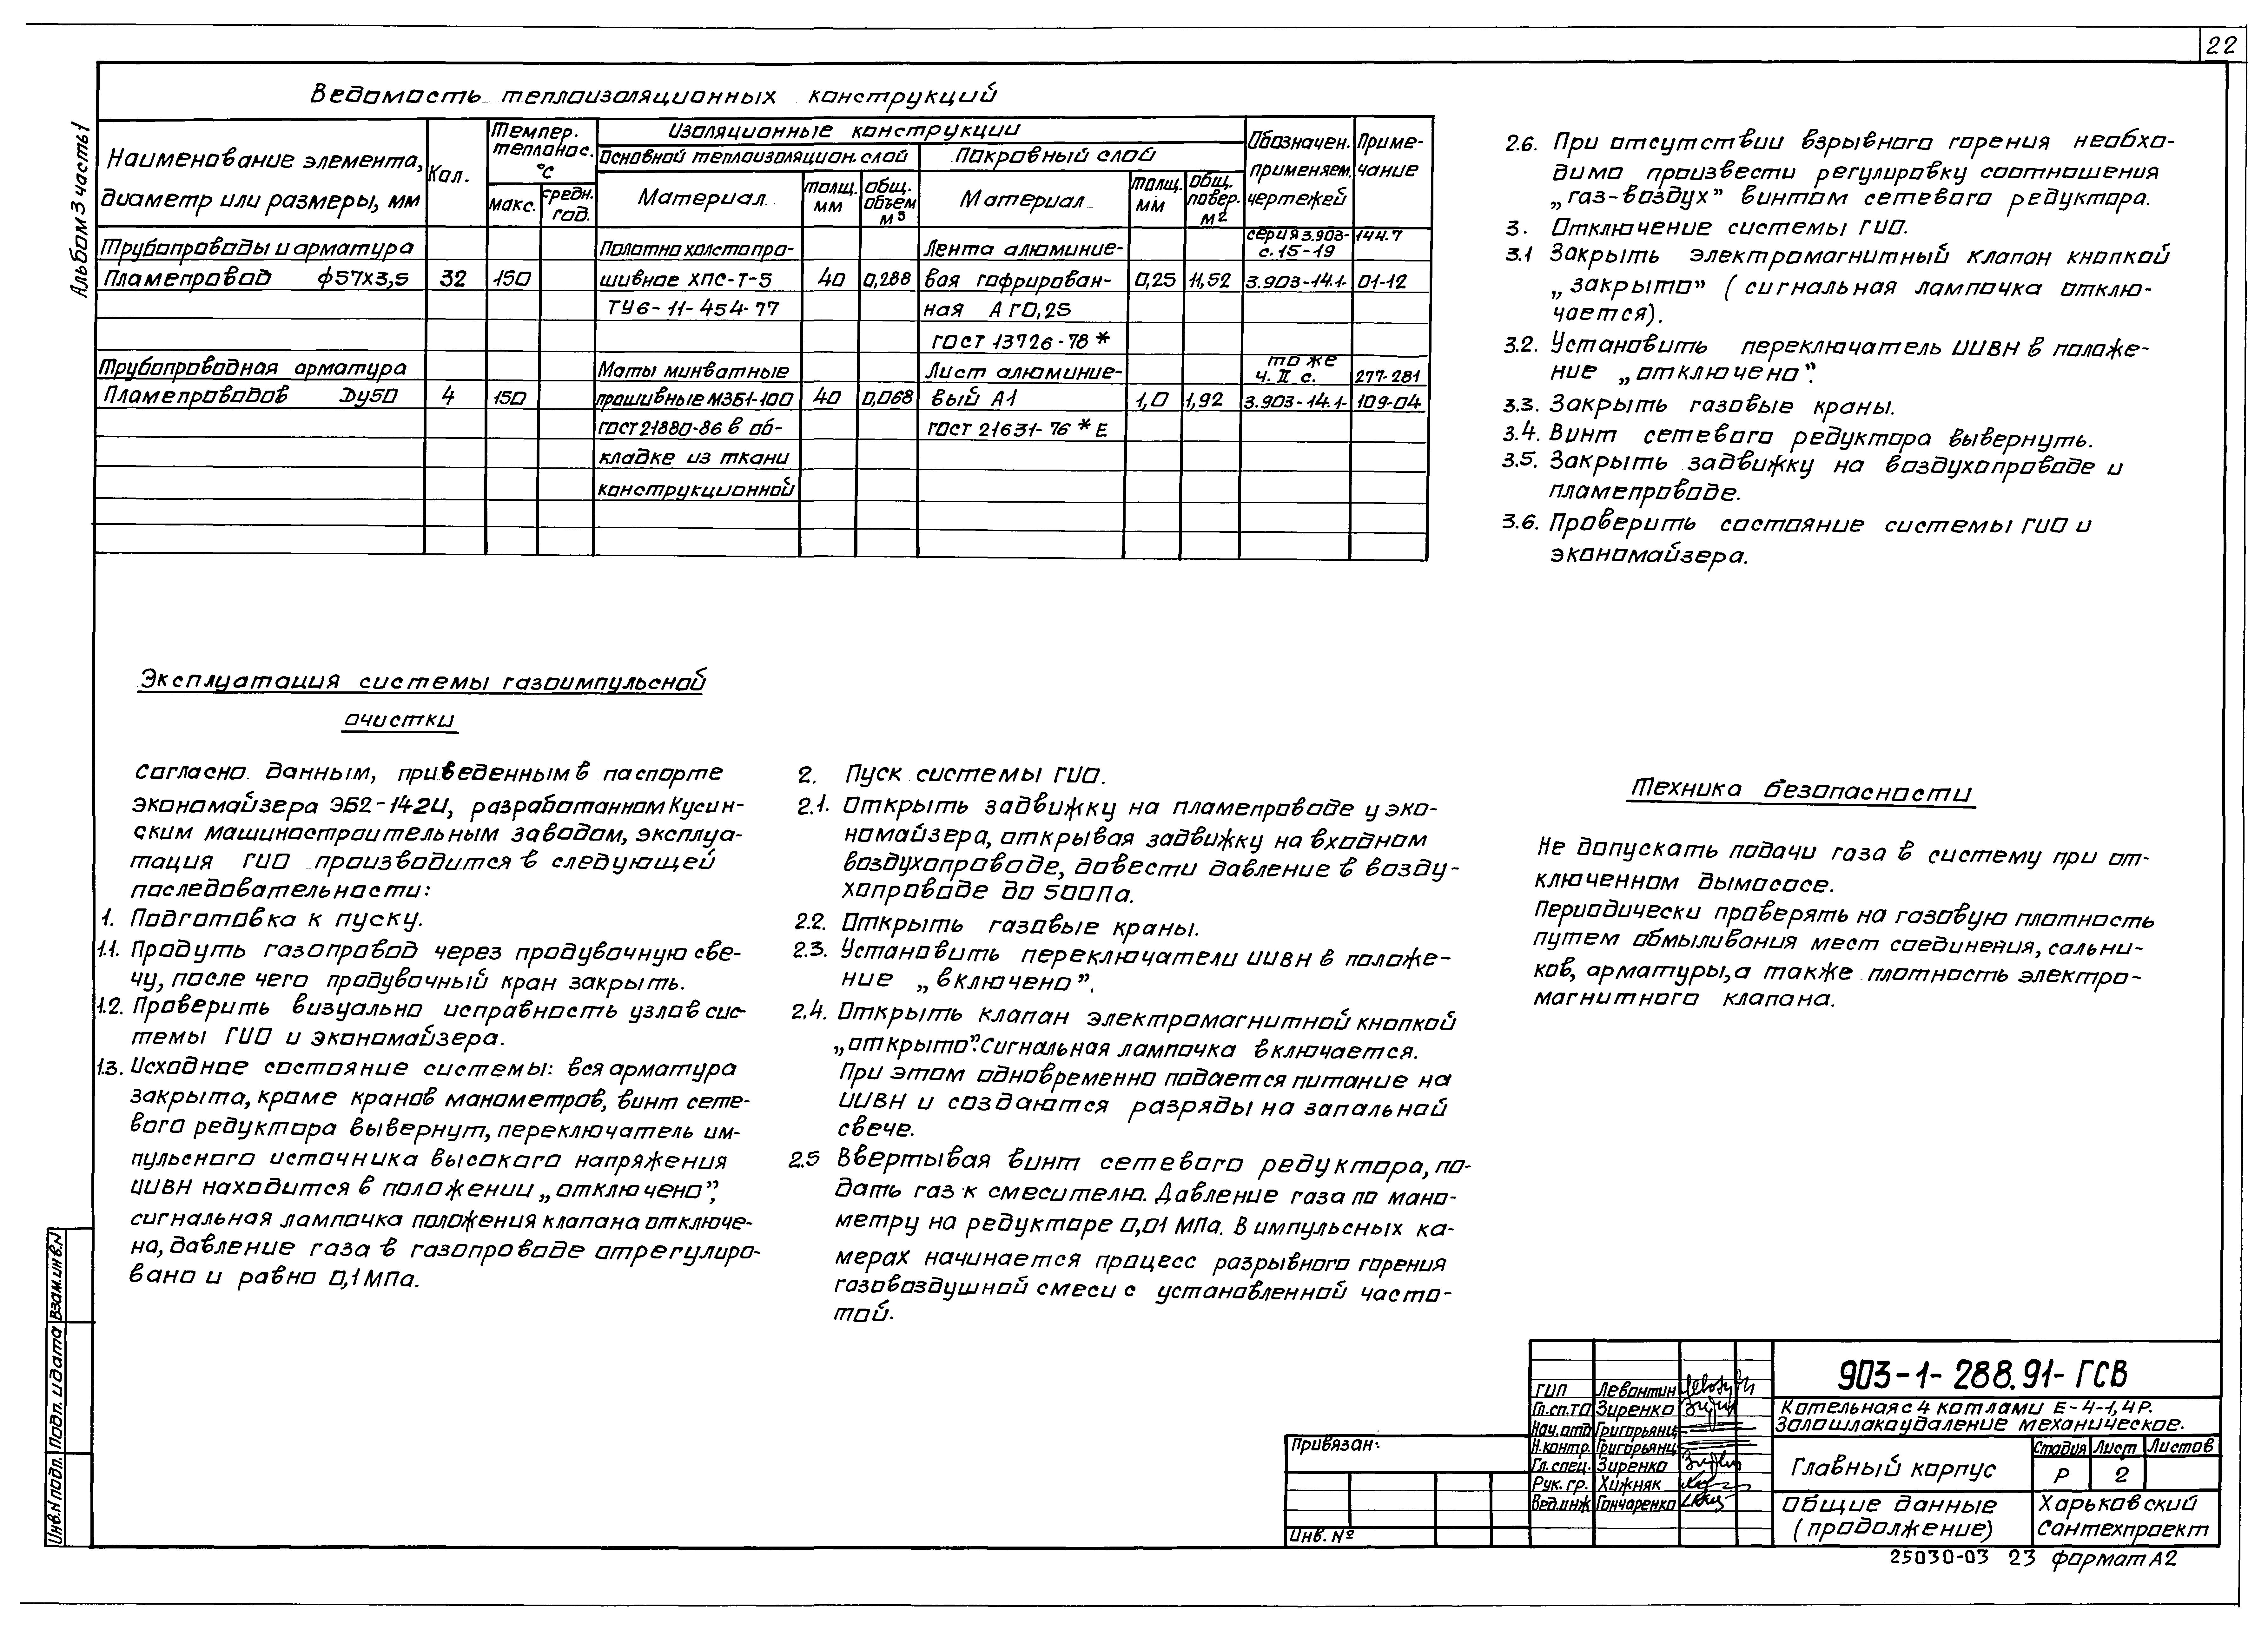 22
Альбом 3 часть 1
Ведомость теплоизоляционных конструкций
Наименование элемента,
диаметр или размеры, мм
Кол.
Темпер.
теплонос.
°С
макс.
средн.
год.
Изоляционные конструкции
Основной теплоизоляцион. слой
Покровный слой
Материал
толщ.
мм
общ.
объем
м3
Материал
толщ.
мм
общ.
повер.
м2
Обозначен.
применяем.
чертежей
Приме-
чание
Трубопроводы и арматура
Полотно холстопро-
Лента алюминие-
серия 3.903-
с.15-19
144.7
Пламепровод ф57х3,5 32 150 шивное ХПС-Т-5 40 0,288 вая гофрирован- 0,25 11,52 3.903-14.1- 01-12
ТУ6-11-454-77 ная АГО,25
ГОСТ 13726-78*
Трубопроводная арматура
Маты минватные
Лист алюминие-
то же
ч. II с.
277-281
Пламепроводов Dу50 4 150 прошивные МЗБ1-100 40 0,068 вый А1 1,0 1,92 3.903-14.1- 109-04
ГОСТ 21880-86 в об- ГОСТ 21631-76*Е
кладке из ткани
конструкционной
Эксплуатация системы газоимпульсной
очистки
Согласно данным, приведенным в паспорте
экономайзера ЭБ2-142И, разработанном Кусин-
ским машиностроительным заводом, эксплуа-
тация ГИО производится в следующей
последовательности:
1. Подготовка к пуску.
1.1. Продуть газопровод через продувочную све-
чу, после чего продувочный кран закрыть.
1.2. Проверить визуально исправность узлов сис-
темы ГИО и экономайзера.
1.3. Исходное состояние системы: вся арматура
закрыта, кроме кранов манометров, винт сете-
вого редуктора вывернут, переключатель им-
пульсного источника высокого напряжения
ИИВН находится в положении „отключено”,
сигнальная лампочка положения клапана отключе-
на, давление газа в газопроводе отрегулиро-
вано и равно 0,1 МПа.
2. Пуск системы ГИО.
2.1. Открыть задвижку на пламепроводе у эко-
номайзера, открывая задвижку на входном
воздухопроводе, довести давление в возду-
хопроводе до 500Па.
2.2. Открыть газовые краны.
2.3. Установить переключатели ИИВН в положе-
ние „включено”.
2.4. Открыть клапан электромагнитной кнопкой
„открыто”. Сигнальная лампочка включается.
При этом одновременно подается питание на
ИИВН и создаются разряды на запальной
свече.
2.5 Ввертывая винт сетевого редуктора, по-
дать газ к смесителю. Давление газа по мано-
метру на редукторе 0,01 МПа. В импульсных ка-
мерах начинается процесс разрывного горения
газовоздушной смеси с установленной часто-
той.
2.6. При отсутствии взрывного горения необхо-
димо произвести регулировку соотношения
„газ-воздух” винтом сетевого редуктора.
3. Отключение системы ГИО.
3.1 Закрыть электромагнитный клапан кнопкой
„закрыто” (сигнальная лампочка отклю-
чается).
3.2. Установить переключатель ИИВН в положе-
ние „отключено”.
3.3. Закрыть газовые краны.
3.4. Винт сетевого редуктора вывернуть.
3.5. Закрыть задвижку на воздухопроводе и
пламепроводе.
3.6. Проверить состояние системы ГИО и
экономайзера.
Техника безопасности
Не допускать подачи газа в систему при от-
ключенном дымососе.
Периодически проверять на газовую плотность
путем обмыливания мест соединения, сальни-
ков, арматуры, а также плотность электро-
магнитного клапана.
Инв.N подл.
Подп. и дата
Взам.инв.N
Привязан:
Инв. №
ГИП Левонтин
Гл.сп.ТО Зиренко
Нач.отд Григорьянц
Н.контр. Григорьянц
Гл.спец. Зиренко
Рук. гр. Хижняк
Вед.инж Гончаренко
903-1-288.91-ГСВ
Котельная с 4 котлами Е-4-1,4Р.
Золошлакоудаление механическое.
Главный корпус
Стадия Лист Листов
Р 2
Общие данные
(продолжение)
Харьковский
Сантехпроект
25030-03 23 формат А2